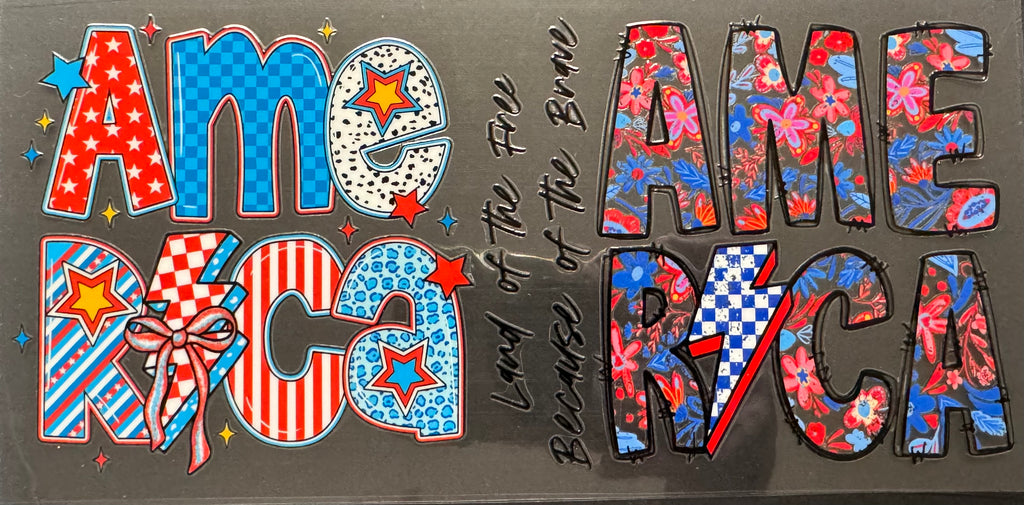 Ame
RICa
Land of the Free
Because of the Brave
AME
RICA